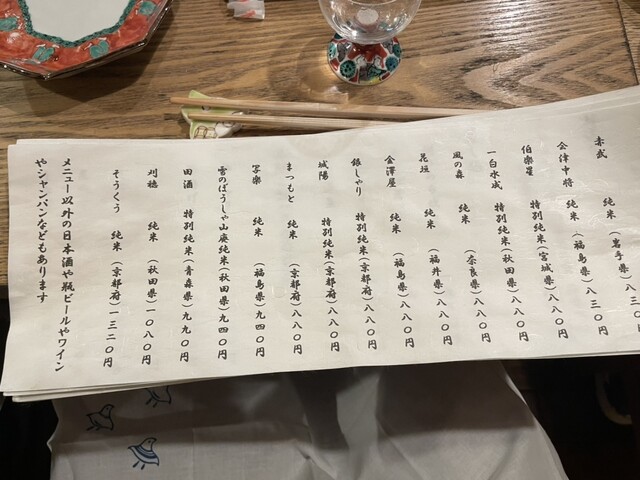 赤武 純米(岩手県)八三〇
会津中将 純米(福島県)八三〇円
伯楽星 特別純米(宮城県)八八〇円
一白水成 特別純米(秋田県)八八〇円
風の森 純米(奈良県)八八〇円
花垣 純米(福井県)八八〇円
金澤屋 純米(福島県)八八〇円
銀しゃり 特別純米(京都府)八八〇円
城陽 特別純米(京都府)八八〇円
まつもと 純米(京都府)八八〇円
写楽 純米(福島県)九四〇円
雪のぼうしゃ山廃純米(秋田県)九四〇円
田酒 特別純米(青森県)九九〇円
刈穂 純米(秋田県)一〇八〇円
そうくう 純米(京都府)一三二〇円
メニュー以外の日本酒や瓶ビールやワイン
やシャンパンなどもあります